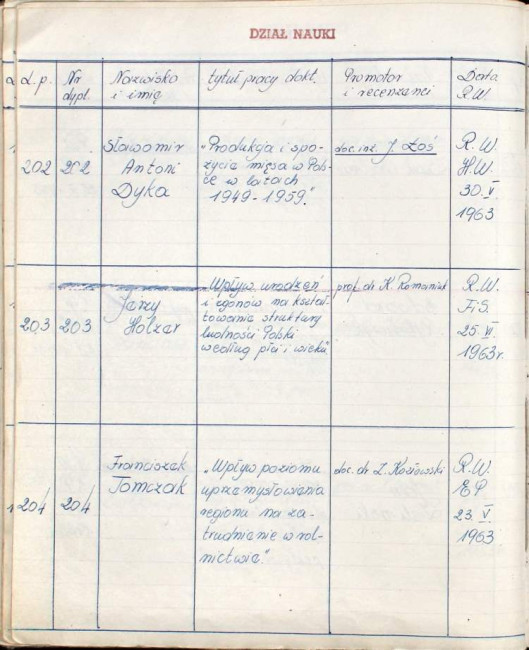 DZIAŁ NAUKI
L.p. Nr dypl. Nazwisko i imię tytuł pracy dokt. Promotor i recenzenci Data R.W.
202 202 Sławomir Antoni Dyka
„Produkcja i spo-
życie mięsa w Pols-
ce w latach
1949-1959."
doc. inż. J. Łoś
R.W.
H.W.
30.V
1963
203 203 Jerzy Holzer
Wpływ urodzeń
i zgonów na kształ-
towanie struktury
ludności Polski
według płci i wieku"
prof. dr K. Romaniuk
R.W.
FiS.
25.VI.
1963r.
204 204 Franciszek Tomczak
„Wpływ poziomu
uprzemysłowienia
regionu na za-
trudnienie w rol-
nictwie."
doc. dr Z. Kozłowski
R.W.
EP
23.V.
1963